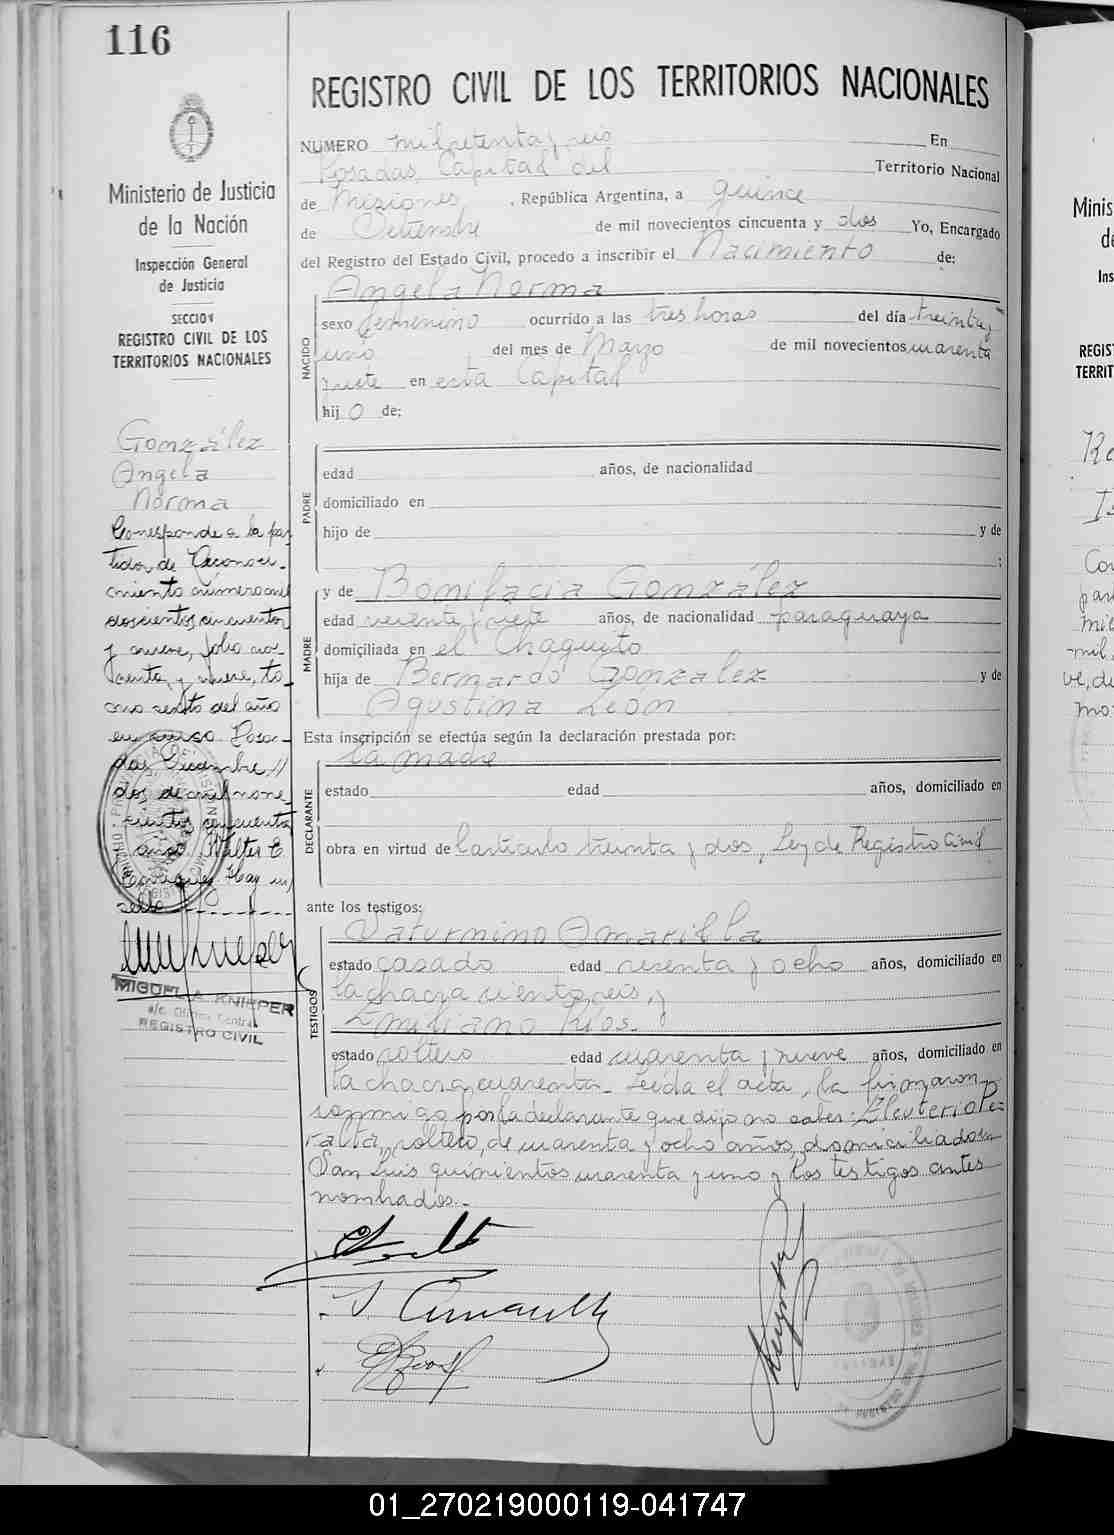 116
Ministerio de Justicia
de la Nación
Inspección General
de Justicia
SECCION
REGISTRO CIVIL DE LOS
TERRITORIOS NACIONALES
González
Angela
Norma
Corresponde a la par-
tida de Reconoci-
miento número mil
doscientos cincuenta
y nueve, folio no-
venta y nueve, to-
mo sexto del año
en curso. Posa-
das, Diciembre 11
dos de mil nove-
cientos cincuenta
años. Walter E.
Hay un
sello
MIGUEL A. KNIEPER
a/c. Oficina Central
REGISTRO CIVIL
REGISTRO CIVIL DE LOS TERRITORIOS NACIONALES
NUMERO mil setenta y seis En
Posadas, Capital del Territorio Nacional
de Misiones, República Argentina, a quince
de Setiembre de mil novecientos cincuenta y dos Yo, Encargado
del Registro del Estado Civil, procedo a inscribir el Nacimiento de:
Angela Norma
NACIDO
sexo femenino ocurrido a las tres horas del día treinta y
uno del mes de Marzo de mil novecientos cuarenta
y siete en esta Capital
hijo de:
PADRE
edad años, de nacionalidad
domiciliado en
hijo de y de
;
y de Bonifacia González
MADRE
edad veinte y siete años, de nacionalidad paraguaya
domiciliada en el Chaquito
hija de Bernardo Gonzalez y de
Agustina León
Esta inscripción se efectúa según la declaración prestada por:
la madre
DECLARANTE
estado edad años, domiciliado en
obra en virtud del artículo treinta y dos, Ley de Registro Civil
ante los testigos:
Saturnino Amarilla
TESTIGOS
estado casado edad sesenta y ocho años, domiciliado en
la chacra ciento seis, y
Emiliano Ríos.
estado soltero edad cuarenta y nueve años, domiciliado en
la chacra cuarenta. Leida el acta, la firmaron
conmigo por la declarante que dijo no saber: Eleuterio Pe-
ralta, soltero, de cuarenta y ocho años, domiciliado en
San Luis quinientos cuarenta y uno y los testigos antes
nombrados.-
S. Amarilla
E Rios
01_270219000119-041747